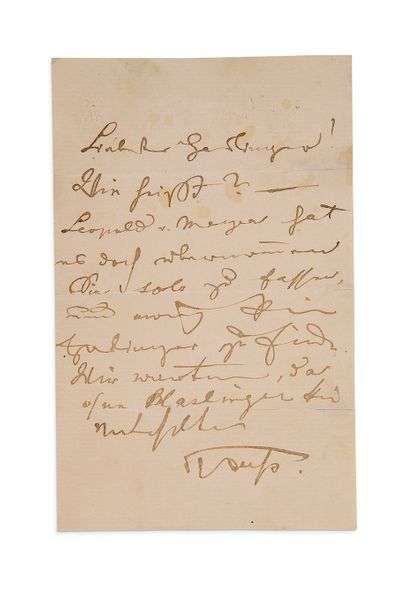 Liebster Haslinger!
Wie heißt? —
Leopold v. Meyer hat
es doch übernommen
Sie solo zu fassen,
und
Haslinger zu finden.
Wir warten, da
ohne Haslinger